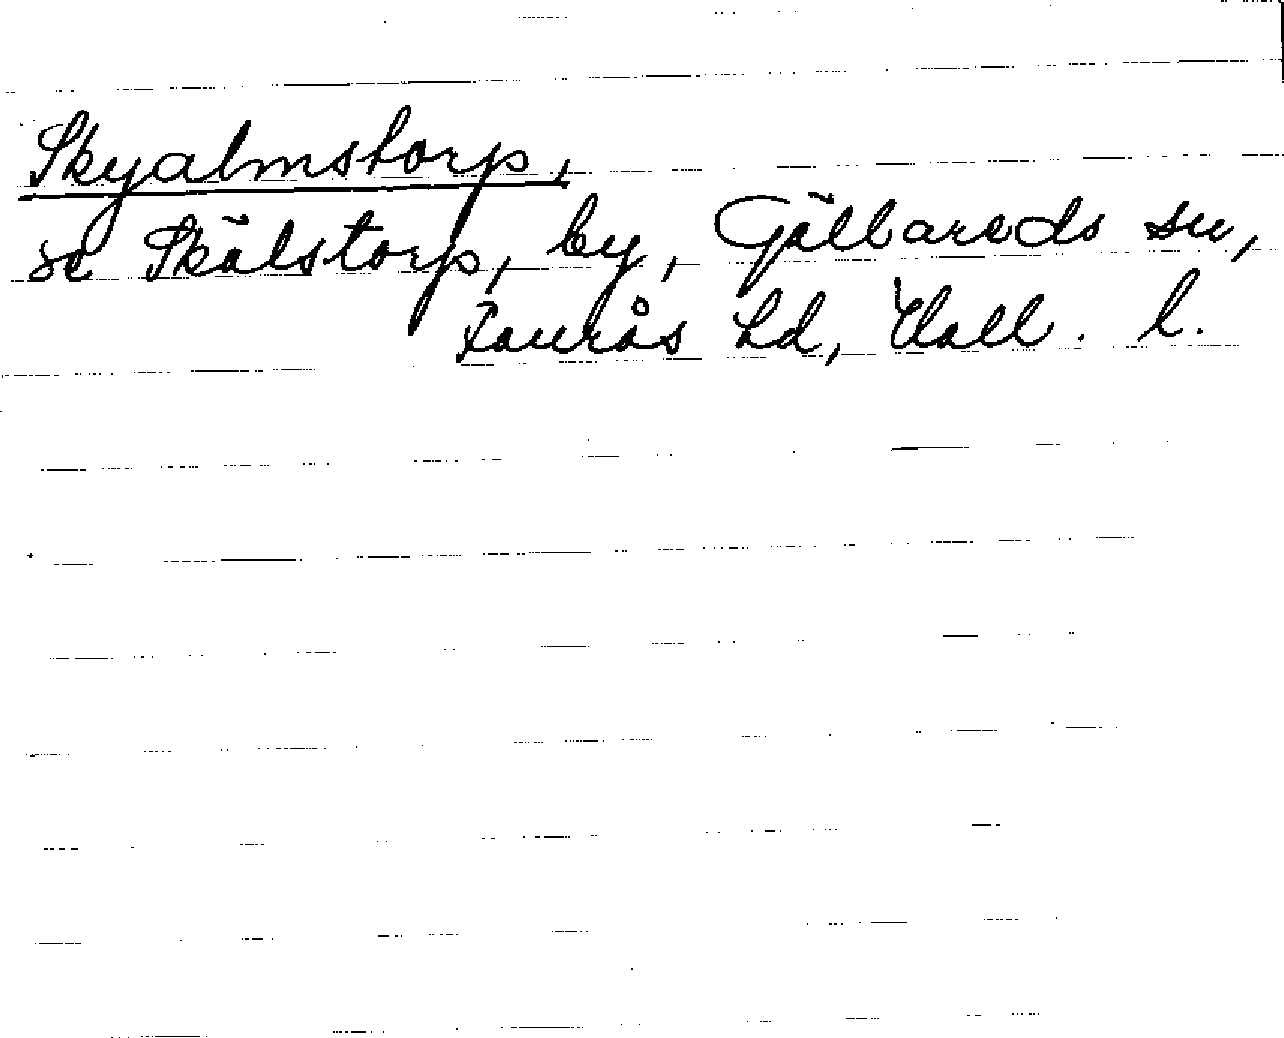 Skyalmstorp,
se Skälstorp, by, Gällareds sn,
Faurås hd, Hall. l.